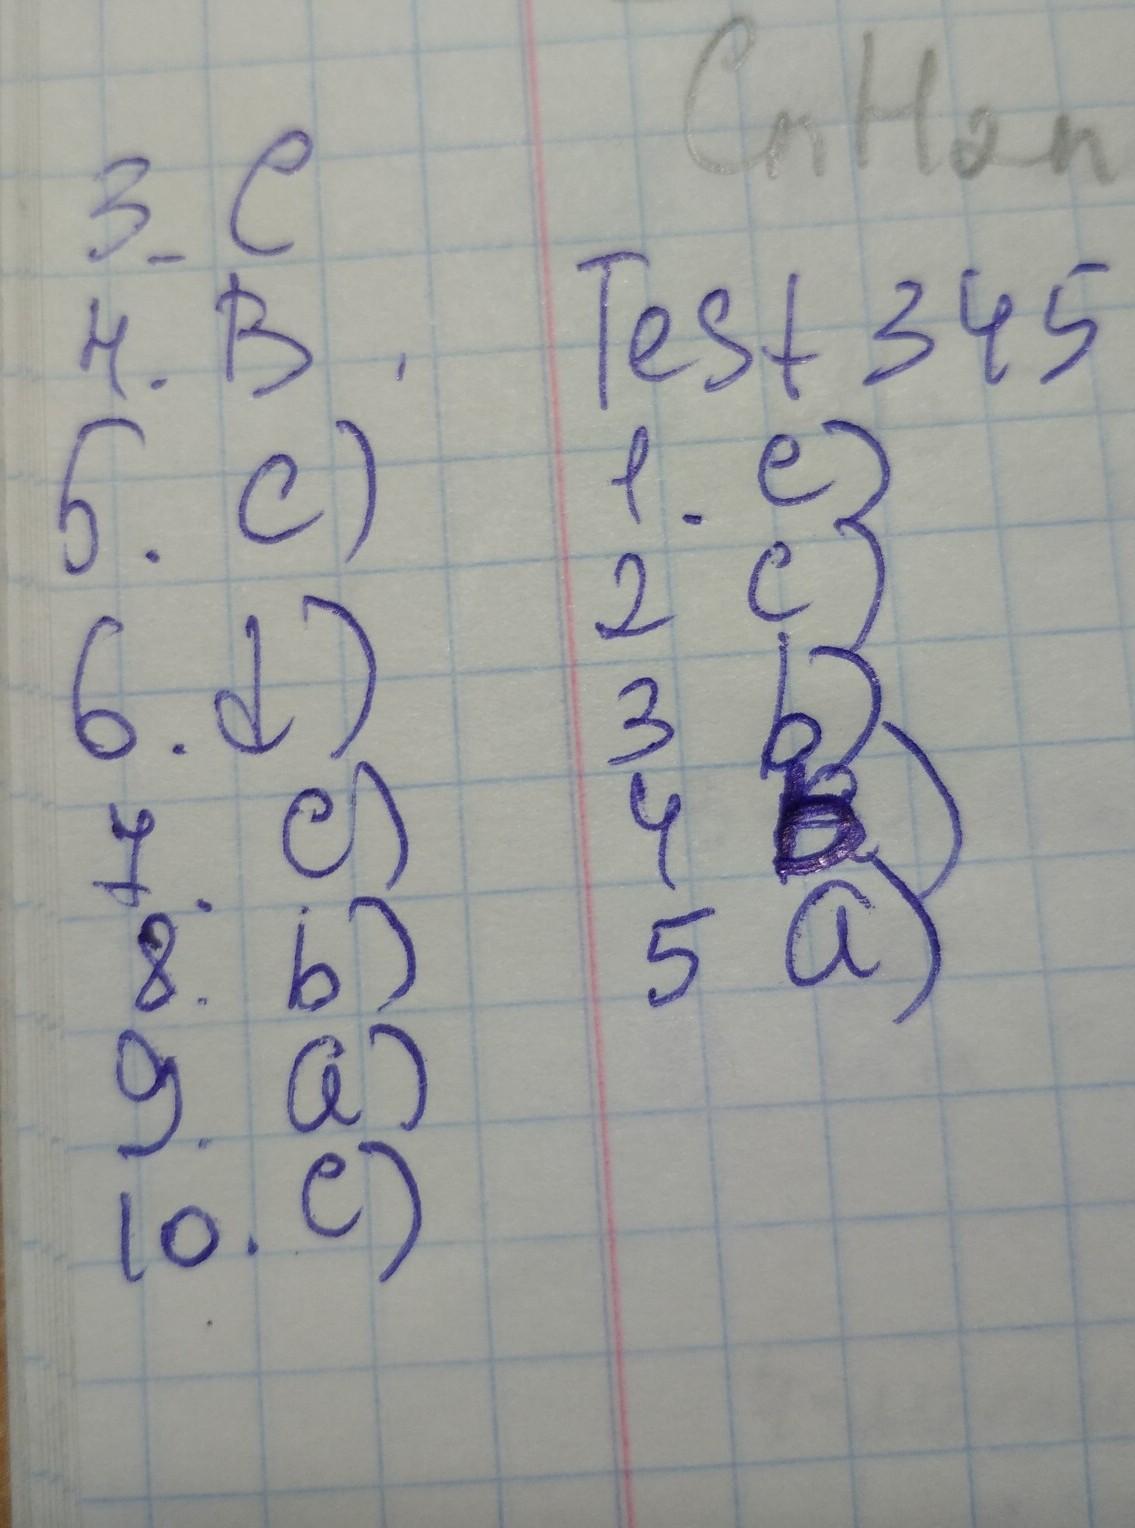 CnH2n
3. C
4. B.
5. c)
6. d)
7. c)
8. b)
9. a)
10. c)
Test 345
1. c)
2 c)
3 b)
4 b)
5 a)